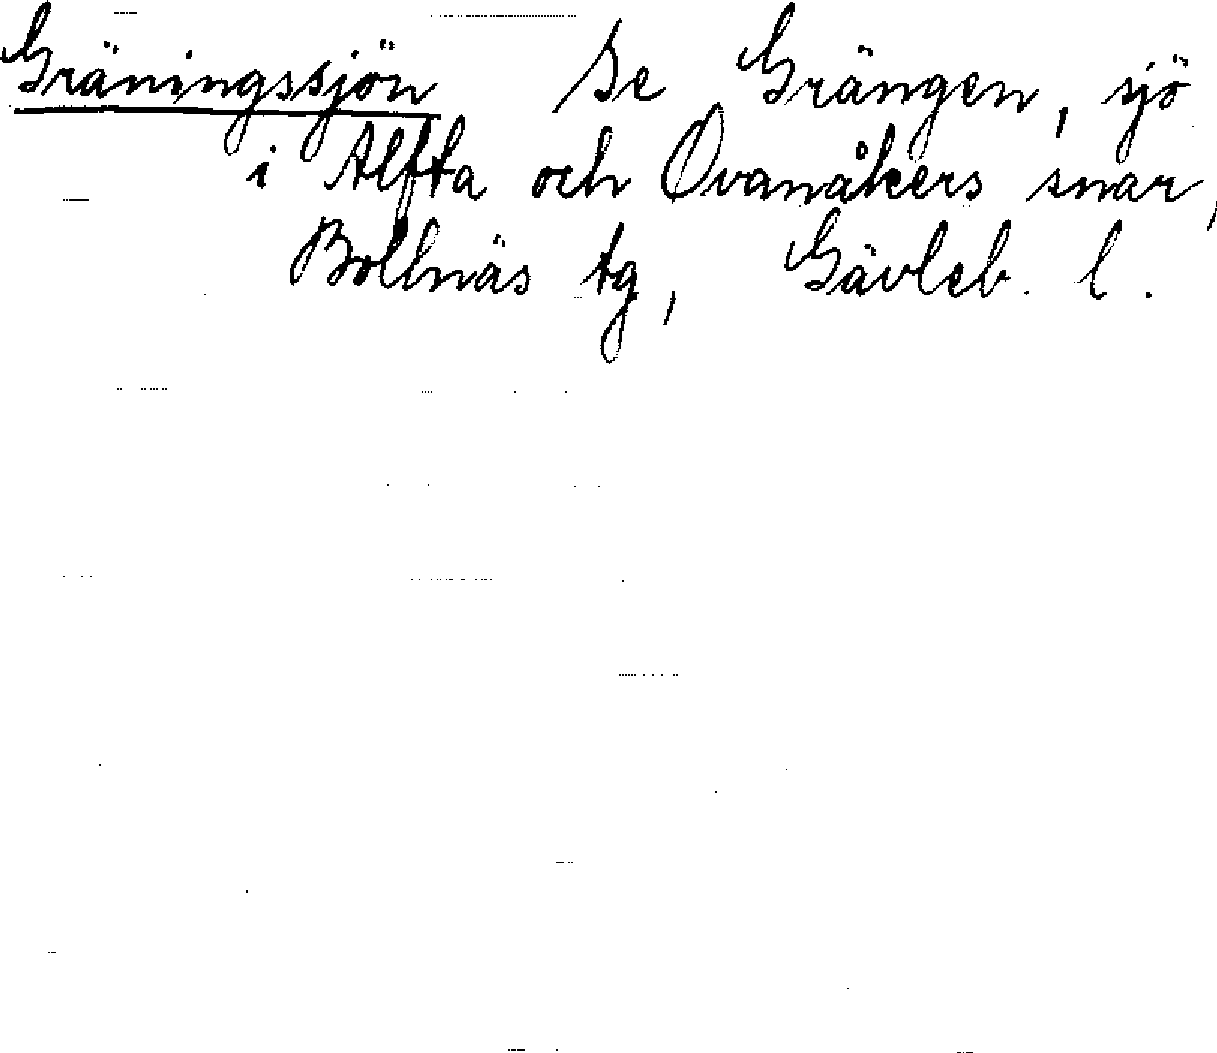 Gräningssjön Se Grängen, sjö
i Alfta och Ovanåkers snar,
Bollnäs tg, Gävleb. l.